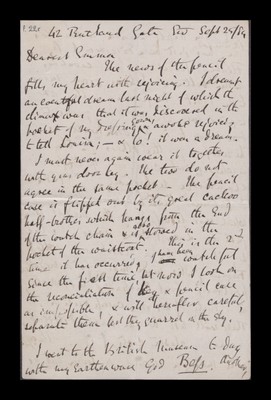 42 Rutland Gate SW Sept 24/84
Dearest Emma
The news of the pencil
fills my heart with rejoicing. I dreamt
an eventful dream last night of which the
climax was that it was discovered in the
pocket of my dressing gown, awoke rejoicing
& told Louisa; – & lo! it was a dream.
I must never again wear it together
with your door key. The two do not
agree in the same pocket – The pencil
case is flipped out by its great
half-brother which hangs from the end
of the watch chain & is also stowed in the
pocket of the waistcoat. This is the 2nd
time it has occurred, I have been watchful
since the first time, but now I look on
the reconciliation of key & pencil case
as impossible, & will hereafter carefully
separate them lest they quarrel on the sly.
I went to the British Museum to day
with my Earthenware God Bess.